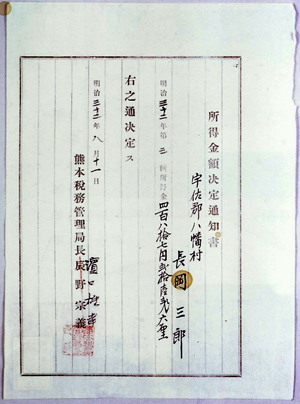 所得金額決定通知書
宇佐郡八幡村
長岡三郎
明治三十二年第三種所得金四百八拾七円弐拾六銭六厘
右之通決定ス
明治三十二年八月十一日
熊本税務管理局長 野宗義
濱口